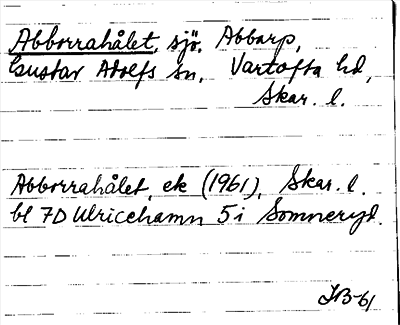 Abborrahålet, sjö. Abbarp,
Gustav Adolfs sn, Vartofta hd,
Skar. l.
Abborrahålet, ek (1961), Skar. l.
bl 7D Ulricehamn 5i Somneryd.
-61